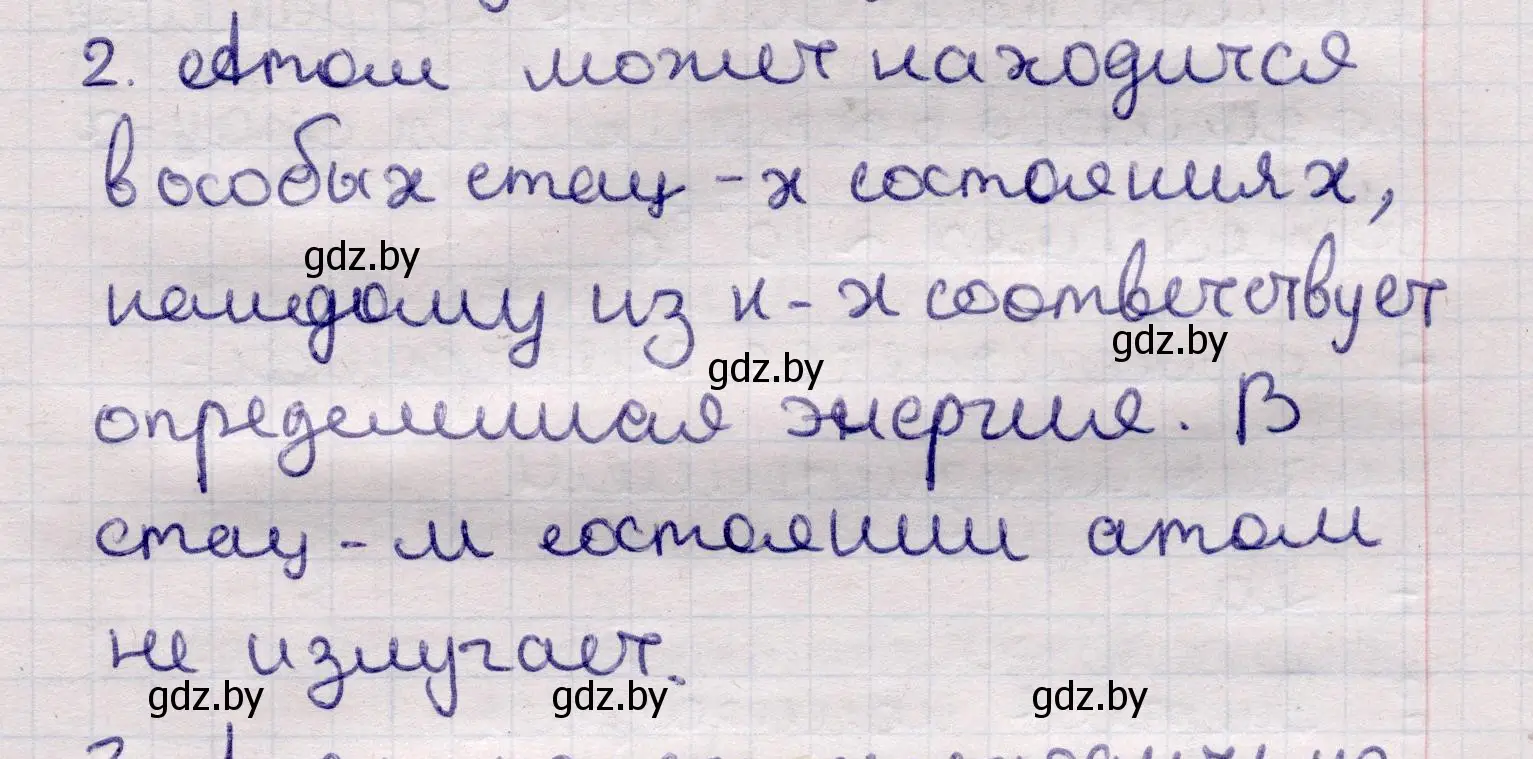 2. Атом может находится
в особых стац-х состояниях,
каждому из к-х соответствует
определенная энергия. В
стац-м состоянии атом
не излучает.
gdz.by
gdz.by
gdz.by
gdz.by
gdz.by
gdz.by